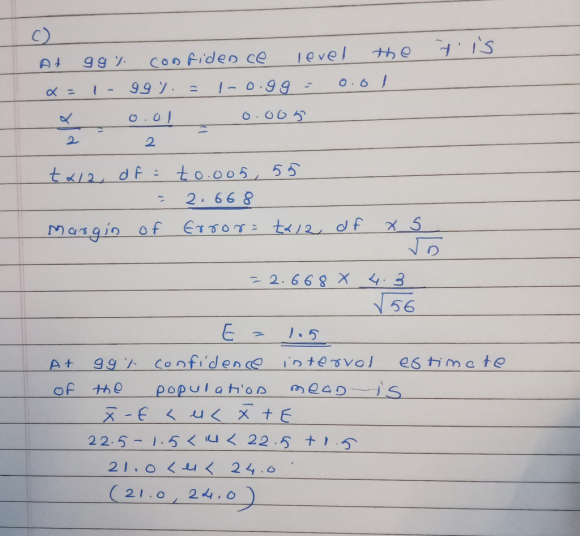 c)
At 99% confidence level the t is
α = 1 - 99% = 1 - 0.99 = 0.01
α/2 = 0.01/2 = 0.005
tα/2, df = t0.005, 55
= 2.668
Margin of Error = tα/2, df × S/√n
= 2.668 × 4.3/√56
E = 1.5
At 99% confidence interval estimate
of the population mean is
x̄ - E < μ < x̄ + E
22.5 - 1.5 < μ < 22.5 + 1.5
21.0 < μ < 24.0
(21.0, 24.0)